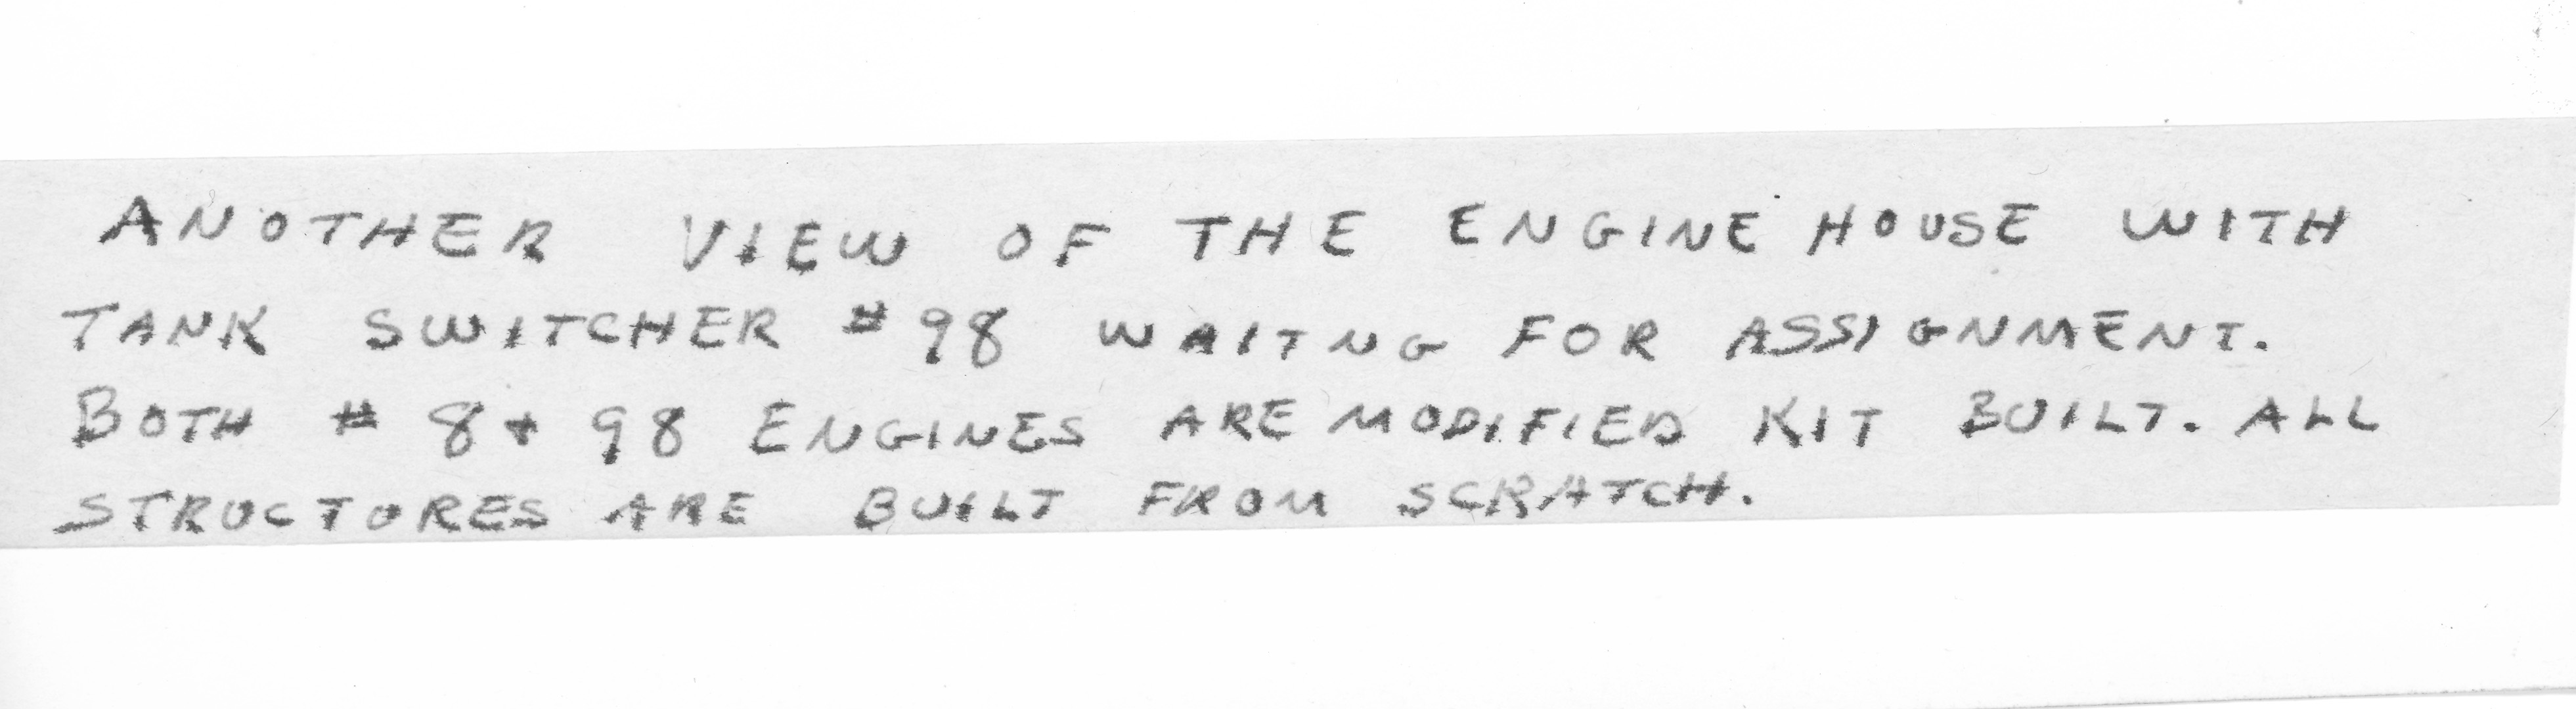 ANOTHER VIEW OF THE ENGINE HOUSE WITH
TANK SWITCHER #98 WAITNG FOR ASSIGNMENT.
BOTH # 8 + 98 ENGINES ARE MODIFIED KIT BUILT. ALL
STRUCTURES ARE BUILT FROM SCRATCH.